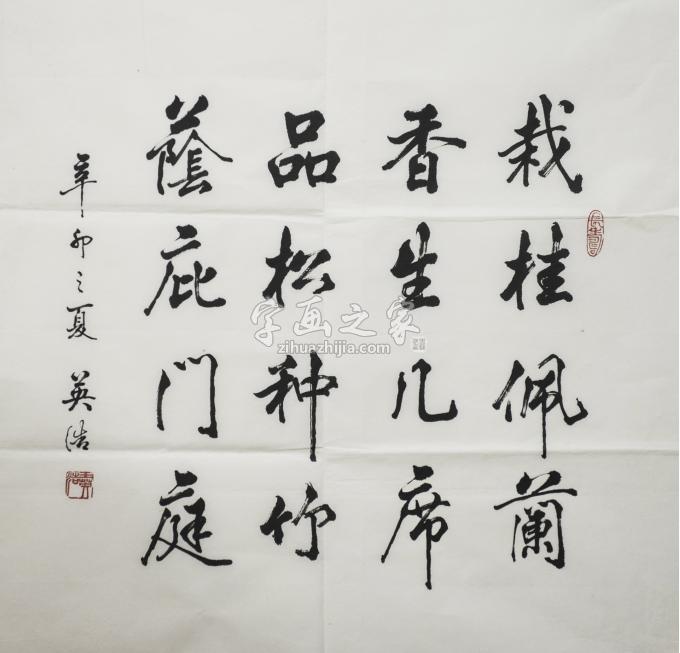 栽桂佩蘭
香生几席
品松种竹
蔭庇門庭
辛卯之夏 英浩
字画之家
zihuazhijia.com